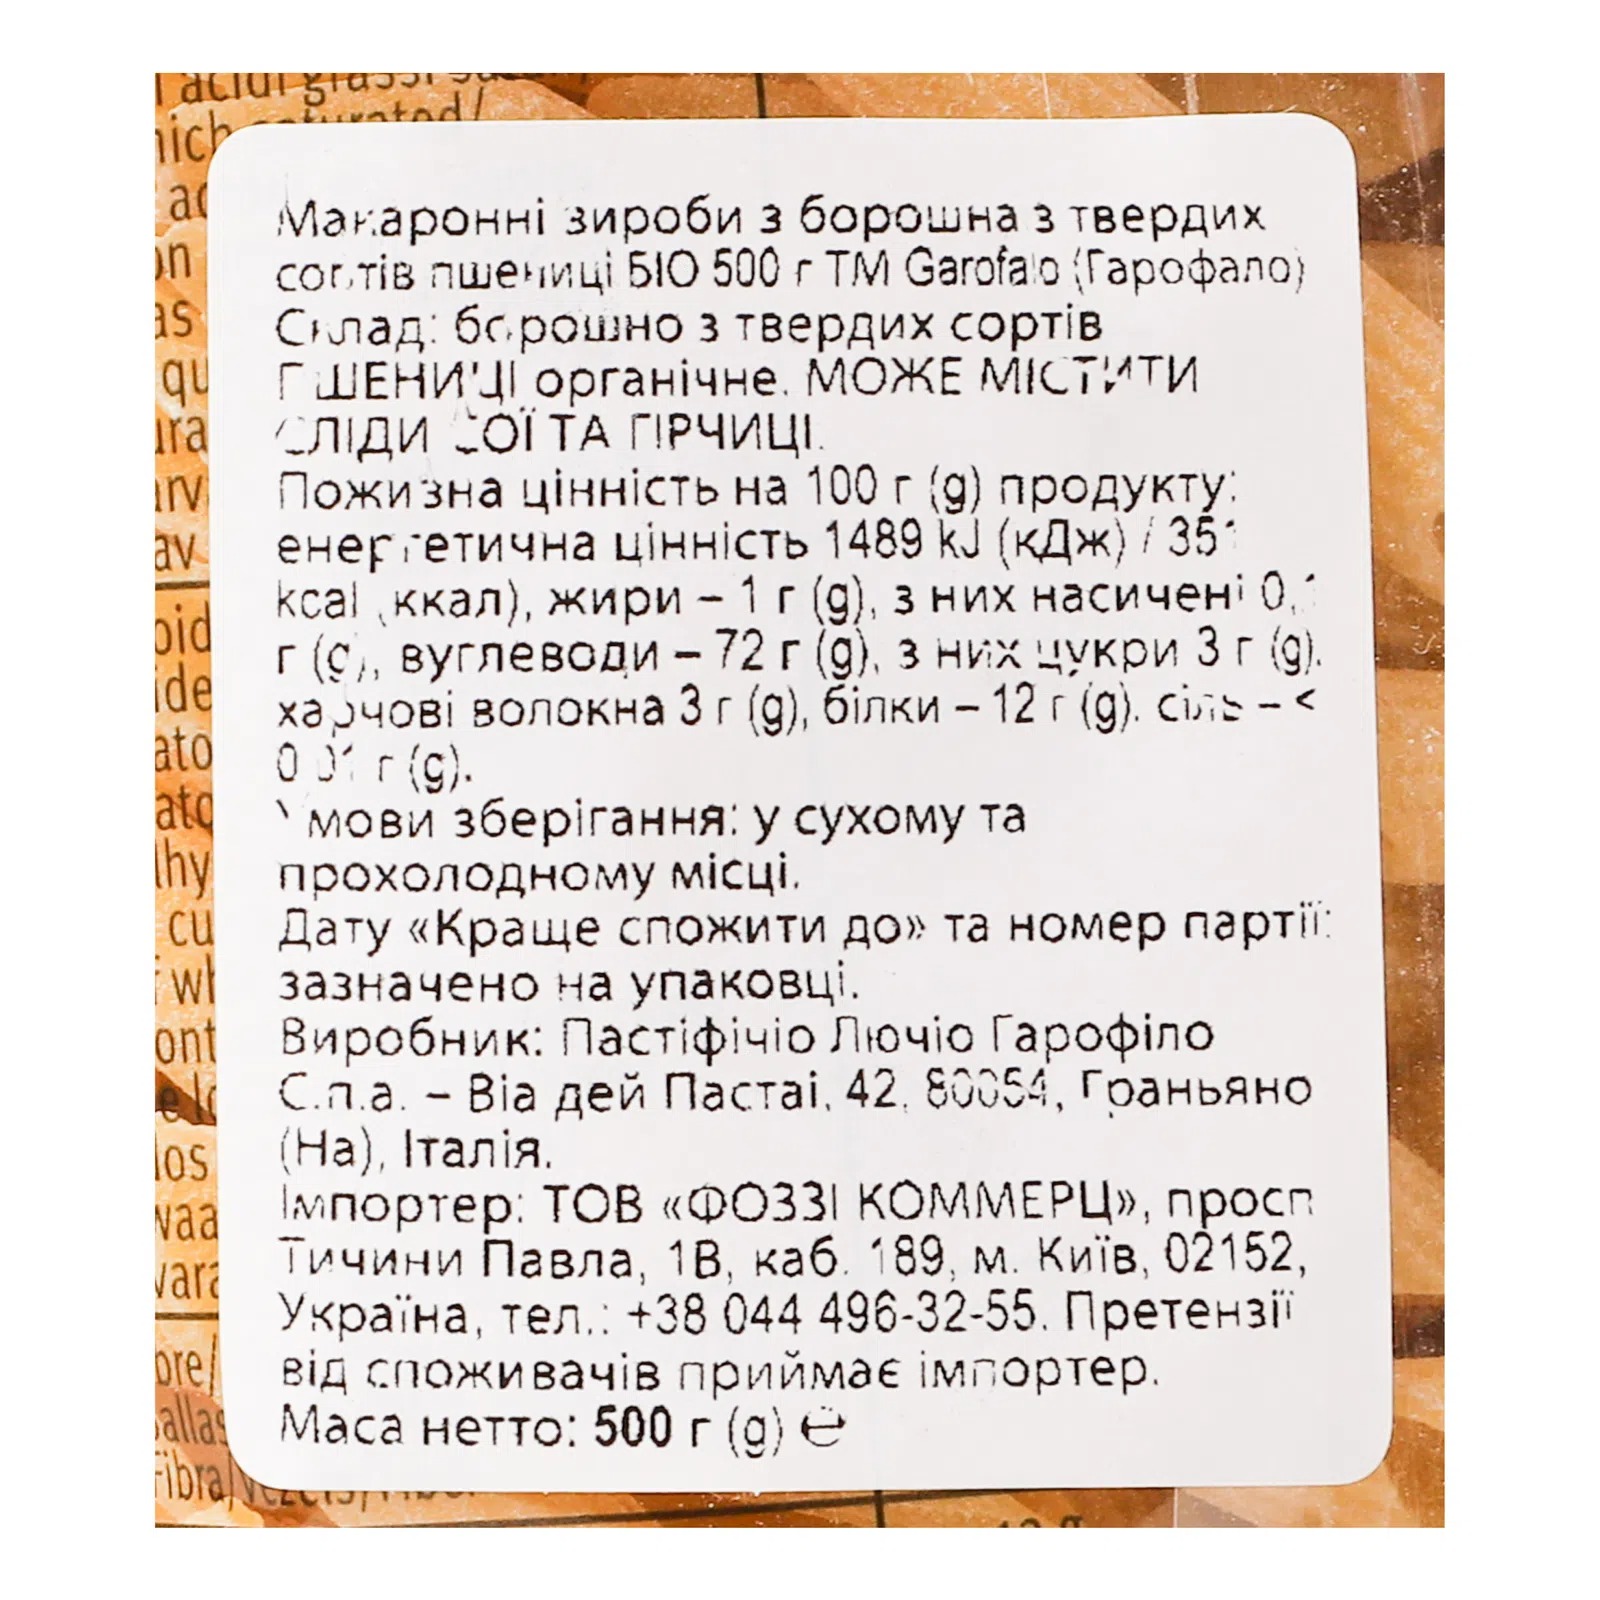 acidi grassi
nich saturated/
Макаронні вироби з борошна з твердих
сортів пшениці БІО 500 г ТМ Garofalo (Гарофало)
Склад: борошно з твердих сортів
ПШЕНИЦІ органічне. МОЖЕ МІСТИТИ
СЛІДИ СОЇ ТА ГІРЧИЦІ.
Поживна цінність на 100 г (g) продукту:
енергетична цінність 1489 kJ (кДж) / 351
kcal (ккал), жири – 1 г (g), з них насичені 0,1
г (g), вуглеводи – 72 г (g), з них цукри 3 г (g),
харчові волокна 3 г (g), білки – 12 г (g). сіль – <
0,01 г (g).
Умови зберігання: у сухому та
прохолодному місці.
Дату «Краще спожити до» та номер партії:
зазначено на упаковці.
Виробник: Пастіфічіо Лючіо Гарофіло
С.п.а. – Віа дей Пастаі, 42, 80054, Граньяно
(На), Італія.
Імпортер: ТОВ «ФОЗЗІ КОММЕРЦ», просп
Тичини Павла, 1В, каб. 189, м. Київ, 02152,
Україна, тел.: +38 044 496-32-55. Претензії
від споживачів приймає імпортер.
Маса нетто: 500 г (g) ℮